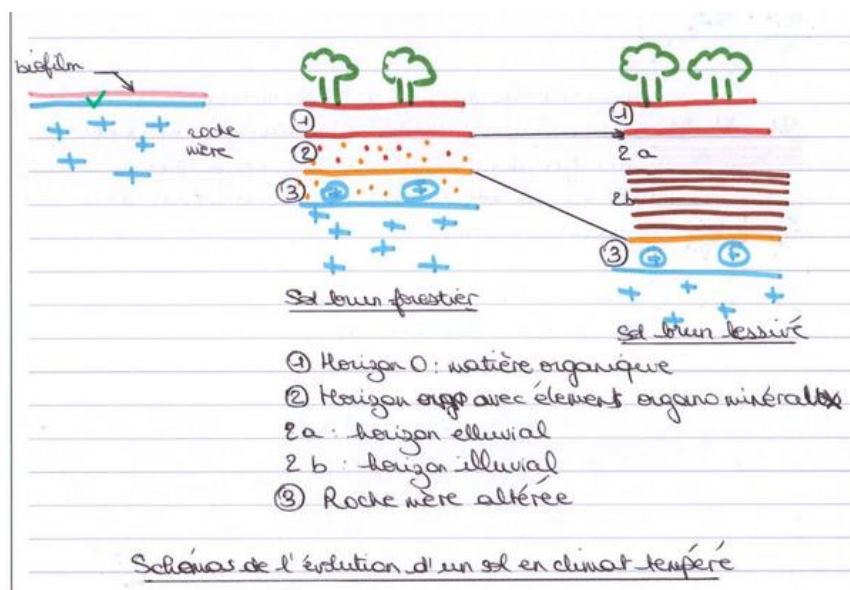 biofilm
roche mère
① ② ③
Sol brun forestier
① 2a 2b ③
Sol brun lessivé
① Horizon O : matière organique
② Horizon avec élément organo minéral
2a : horizon elluvial
2b : horizon illuvial
③ Roche mère altérée
Schémas de l'évolution d'un sol en climat tempéré